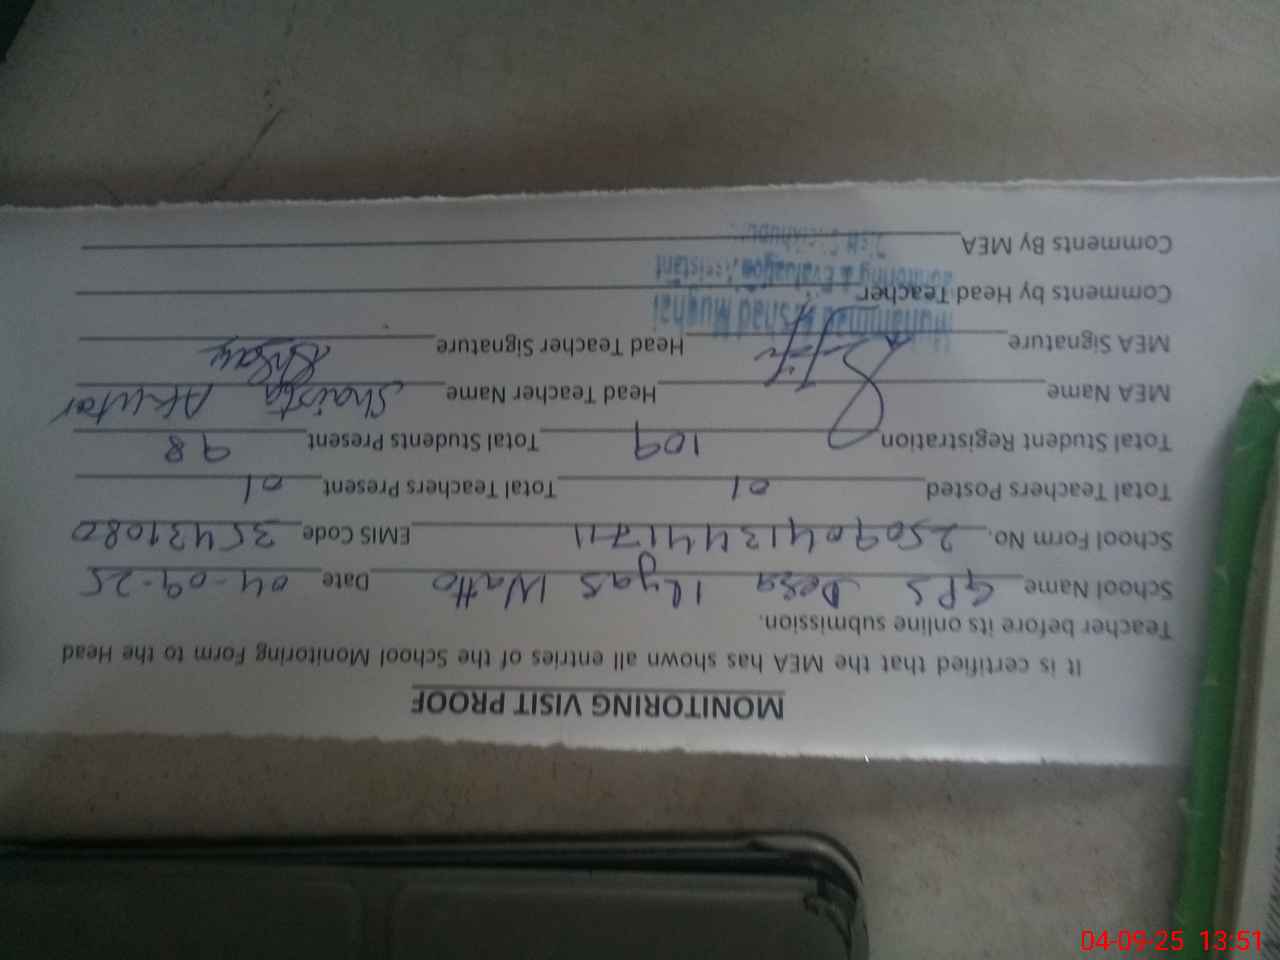 MONITORING VISIT PROOF
It is certified that the MEA has shown all entries of the School Monitoring Form to the Head
Teacher before its online submission.
School Name GPS Dera Ilyas Watto Date 04-09-25
School Form No. 25090413441711 EMIS Code 35431080
Total Teachers Posted 01 Total Teachers Present 01
Total Student Registration 109 Total Students Present 98
MEA Name Head Teacher Name Shaista Akhtar
MEA Signature Head Teacher Signature
Muhammad Arshad Mughal
Comments by Head Teacher
Monitoring & Evaluation Assistant
Comments By MEA
04-09-25 13:51